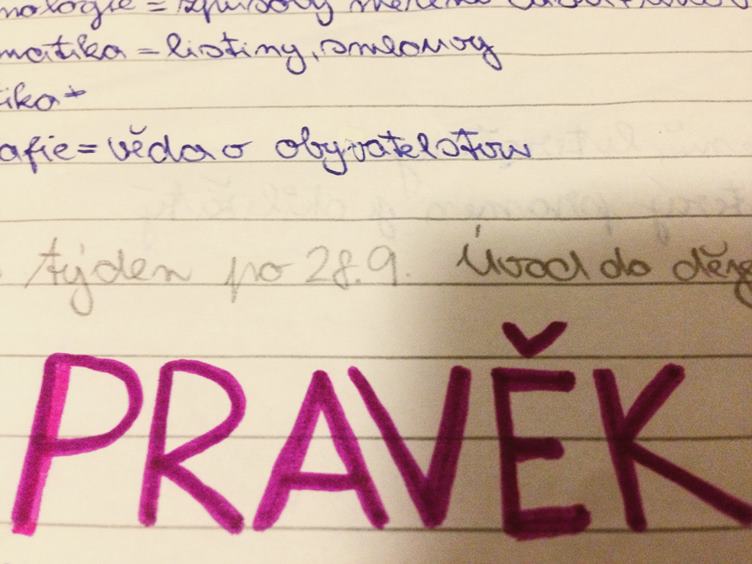 nologie = způsoby měření
matika = listiny, smlouvy
tika +
afie = věda o obyvatelstvu
týden po 28.9. Úvod do děj
PRAVĚK